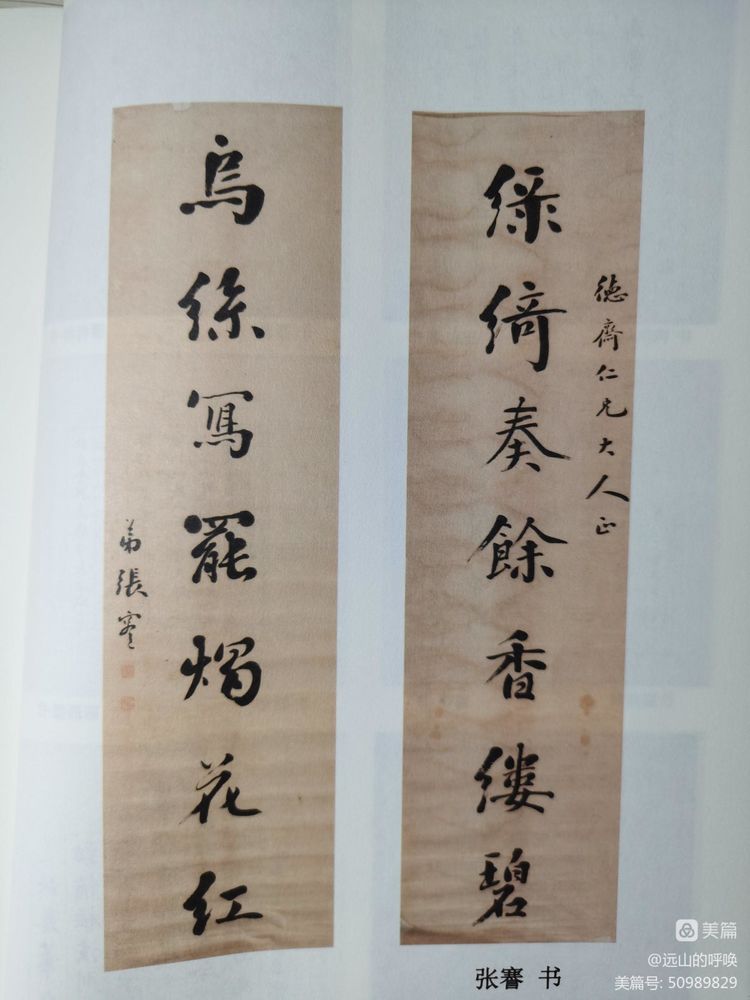 綠綺奏餘香縷碧
德齋仁兄大人正
烏絲寫罷燭花紅
弟張謇
张謇 书
美篇
@远山的呼唤
美篇号: 50989829